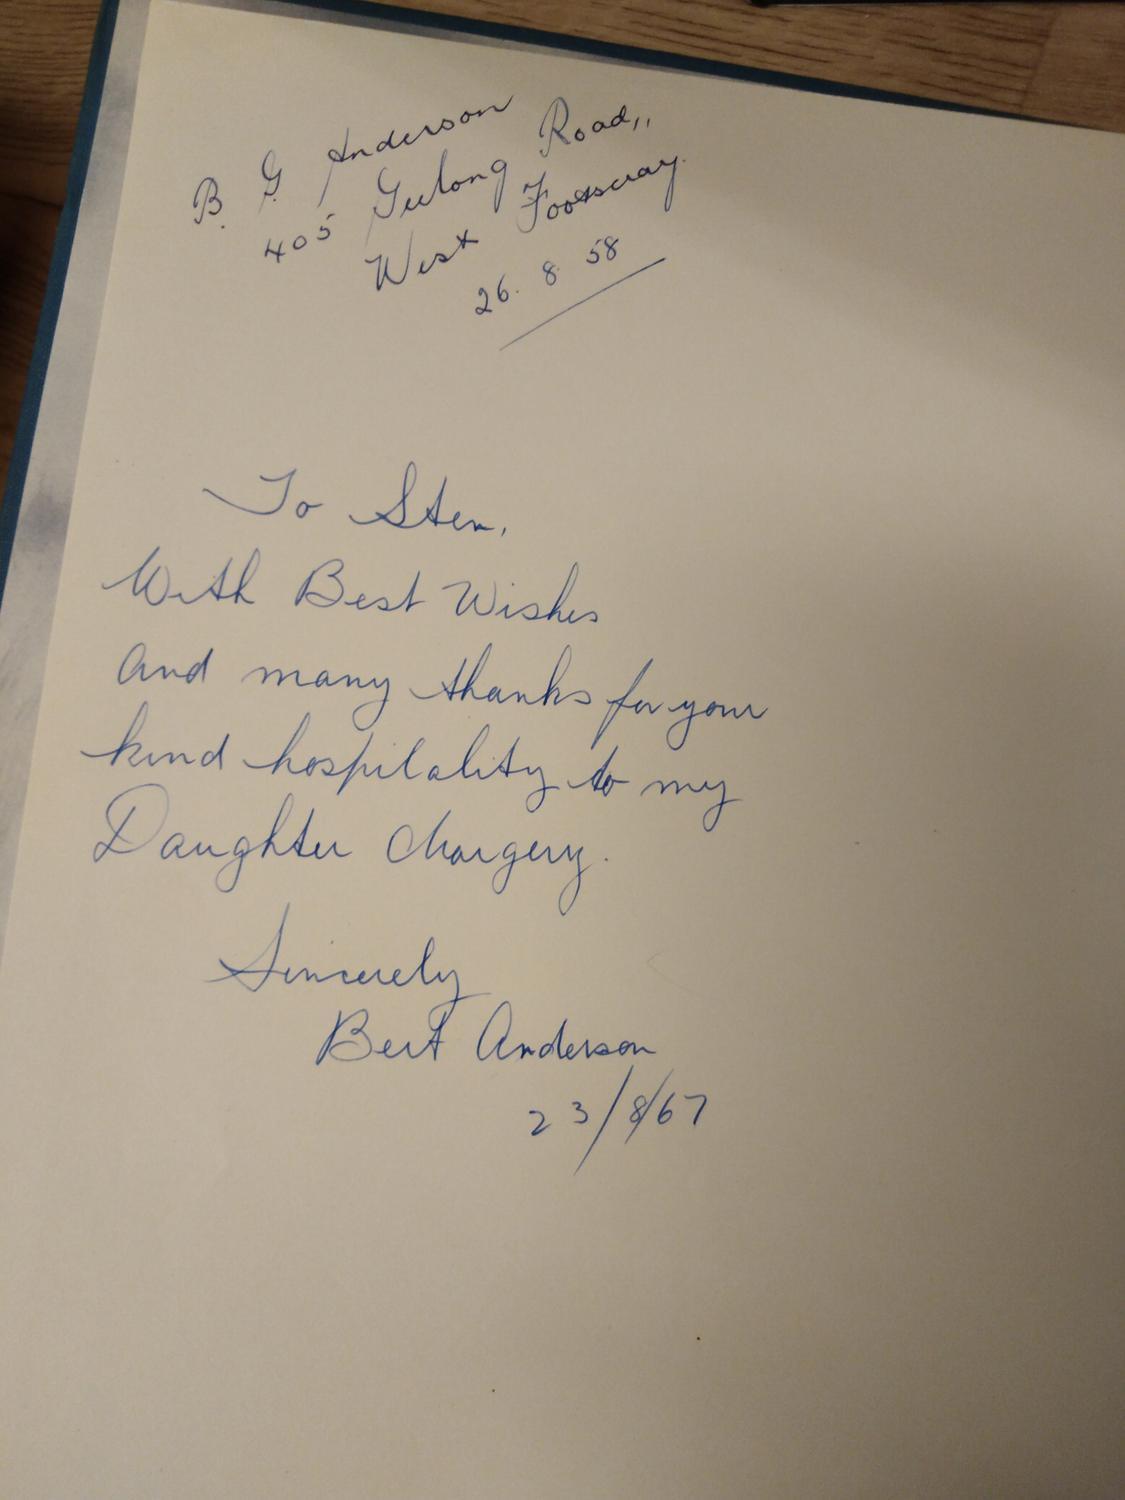 B. G Anderson
405 Geelong Road,,
West Footscray.
26. 8 58
To Sten,
With Best Wishes
and many thanks for your
kind hospitality to my
Daughter Margery.
Sincerely
Bert Anderson
23/8/67